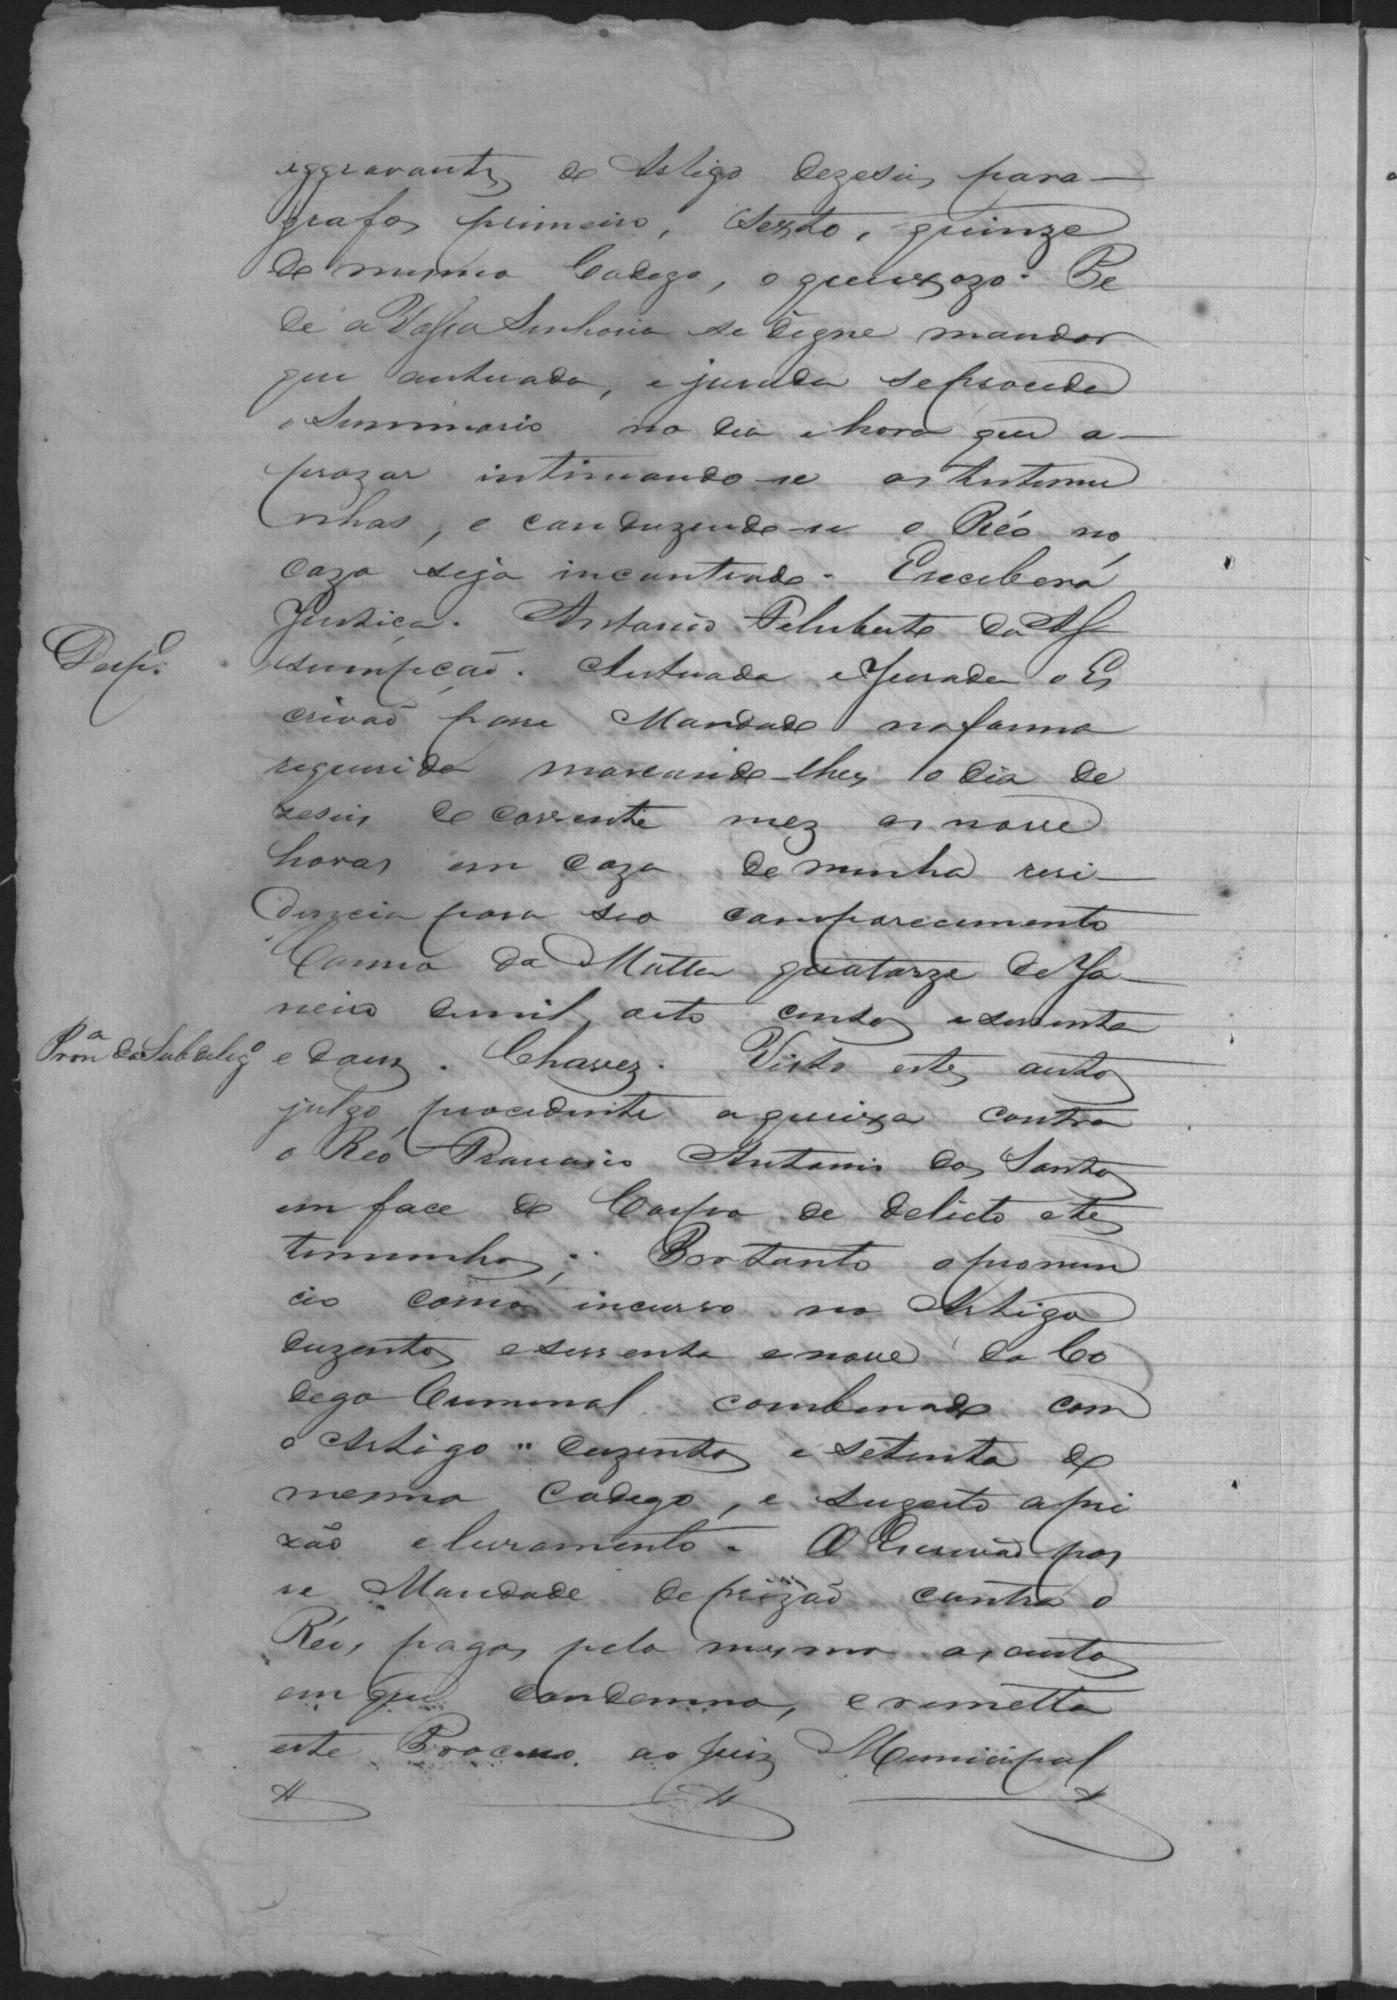 aggravantes do Artigo dezeseis para-
grafos primeiro, Sexto, quinze
do mesmo Codego, o queixozo. Pe
de a Vossa Senhoria se digne mandar
que autuada, e jurada se proceda
o Summario no dia e hora que a-
prazar intimando-se as testemu
nhas, e conduzendo-se o Réo no
cazo seja incontrado. E receberá
Justiça. Antonio Feliberto da As
Desp.o
sumpção. Autuada e Jurada o Es
crivão passe Mandado na forma
requerida marcando-lhes o dia de
zeseis do corrente mez as nove
horas em caza de minha resi-
dencia para seo comparecimento
Canna da Matta quatorze de Ja-
neiro de mil oito centos e sessenta
Pron.a do Subdeleg.o
e dous. Chavez. Visto estes autos
julgo procedente a queixa contra
o Réo Francisco Antonio dos Santos
em face do Corpo de delicto e tes
temunhas; Portanto o pronun
cio como incurso no Artigo
duzentos e sessenta e nove do Co
dego Criminal combinado com
o Artigo " duzentos e setenta do
mesmo Codego, e sugeito a pri
zão e livramento. O Escrivão pas
se Mandado de prizão contra o
Réo, pagos pelo mesmo as custas
em que condemno, e remetta
este Processo ao Juiz Municipal